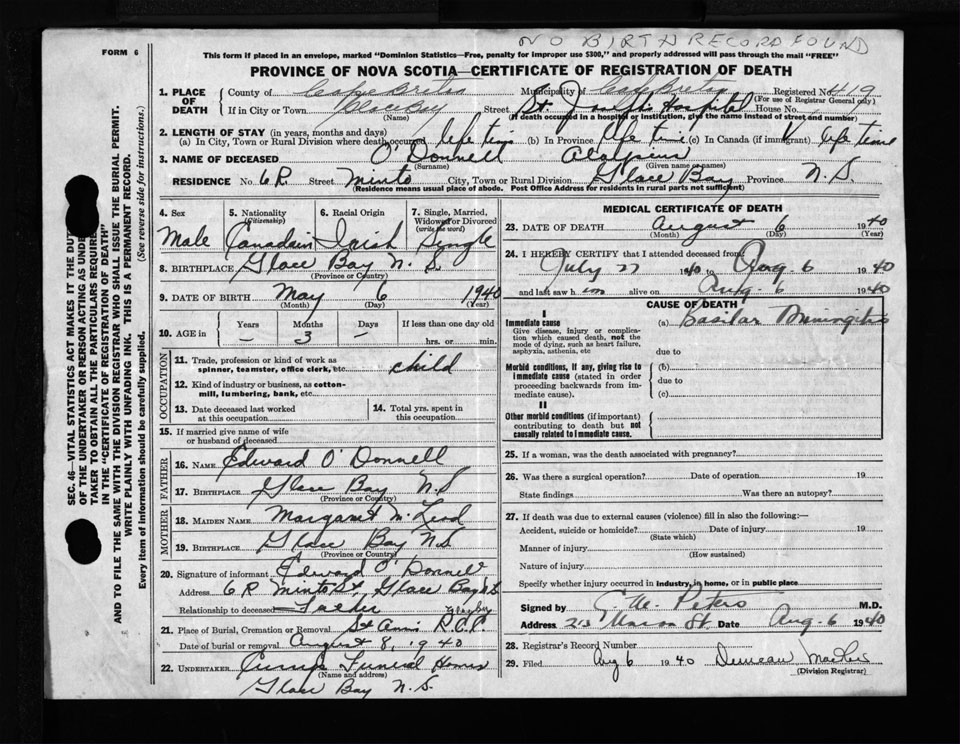 NO BIRTH RECORD FOUND
FORM 6
This form if placed in an envelope, marked "Dominion Statistics—Free, penalty for improper use $300," and properly addressed will pass through the mail "FREE"
PROVINCE OF NOVA SCOTIA—CERTIFICATE OF REGISTRATION OF DEATH
1. PLACE OF DEATH County of Cape Breton Municipality of Cape Breton Registered No. 419
(For use of Registrar General only)
If in City or Town Glace Bay Street St. Joseph's Hospital House No.
(Name) (If death occurred in a hospital or institution, give the name instead of street and number)
2. LENGTH OF STAY (in years, months and days)
(a) In City, Town or Rural Division where death occurred life time (b) In Province life time (c) In Canada (if immigrant) life time
3. NAME OF DECEASED O'Donnell
(Surname) (Given name or names)
RESIDENCE No. 6R Street Minto City, Town or Rural Division Glace Bay Province N.S.
(Residence means usual place of abode. Post Office Address for residents in rural parts not sufficient)
4. Sex Male
5. Nationality (Citizenship) Canadain
6. Racial Origin Irish
7. Single, Married, Widowed or Divorced (write the word) Single
8. BIRTHPLACE Glace Bay N. S.
(Province or Country)
9. DATE OF BIRTH May 6 1940
(Month) (Day) (Year)
10. AGE in Years Months Days If less than one day old
– 3 – hrs. or min.
OCCUPATION
11. Trade, profession or kind of work as spinner, teamster, office clerk, etc. child
12. Kind of industry or business, as cotton-mill, lumbering, bank, etc.
13. Date deceased last worked at this occupation
14. Total yrs. spent in this occupation
15. If married give name of wife or husband of deceased
FATHER
16. NAME Edward O'Donnell
17. BIRTHPLACE Glace Bay N.S
(Province or Country)
MOTHER
18. MAIDEN NAME Margaret McLeod
19. BIRTHPLACE Glace Bay N.S
(Province or Country)
20. Signature of informant Edward O'Donnell
Address 6 R Minto St, Glace Bay N.S
Relationship to deceased Father
21. Place of Burial, Cremation or Removal St Anns R.C.C.
Date of burial or removal August 8, 1940
22. UNDERTAKER Funeral Home
(Name and address)
Glace Bay N. S.
MEDICAL CERTIFICATE OF DEATH
23. DATE OF DEATH August 6 1940
(Month) (Day) (Year)
24. I HEREBY CERTIFY that I attended deceased from
July 27 1940 to Aug-6 1940
and last saw him alive on Aug-6 1940
CAUSE OF DEATH
I
Immediate cause
Give disease, injury or complication which caused death, not the mode of dying, such as heart failure, asphyxia, asthenia, etc
(a) Basilar Meningitis
due to
Morbid conditions, if any, giving rise to immediate cause (stated in order proceeding backwards from immediate cause).
(b)
due to
(c)
II
Other morbid conditions (if important) contributing to death but not causally related to immediate cause.
25. If a woman, was the death associated with pregnancy?
26. Was there a surgical operation? Date of operation 19
State findings Was there an autopsy?
27. If death was due to external causes (violence) fill in also the following:—
Accident, suicide or homicide? Date of injury 19
(State which)
Manner of injury
(How sustained)
Nature of injury
Specify whether injury occurred in industry, in home, or in public place
Signed by E. M. Peters M.D.
Address St. Date Aug-6 1940
28. Registrar's Record Number
29. Filed Aug 6 1940 Duncan
(Division Registrar)
SEC. 46—VITAL STATISTICS ACT MAKES IT THE DUTY
OF THE UNDERTAKER OR PERSON ACTING AS UNDER-
TAKER TO OBTAIN ALL THE PARTICULARS REQUIRED
IN THE "CERTIFICATE OF REGISTRATION OF DEATH"
AND TO FILE THE SAME WITH THE DIVISION REGISTRAR WHO SHALL ISSUE THE BURIAL PERMIT.
WRITE PLAINLY WITH UNFADING INK. THIS IS A PERMANENT RECORD.
Every item of information should be carefully supplied. (See reverse side for instructions.)